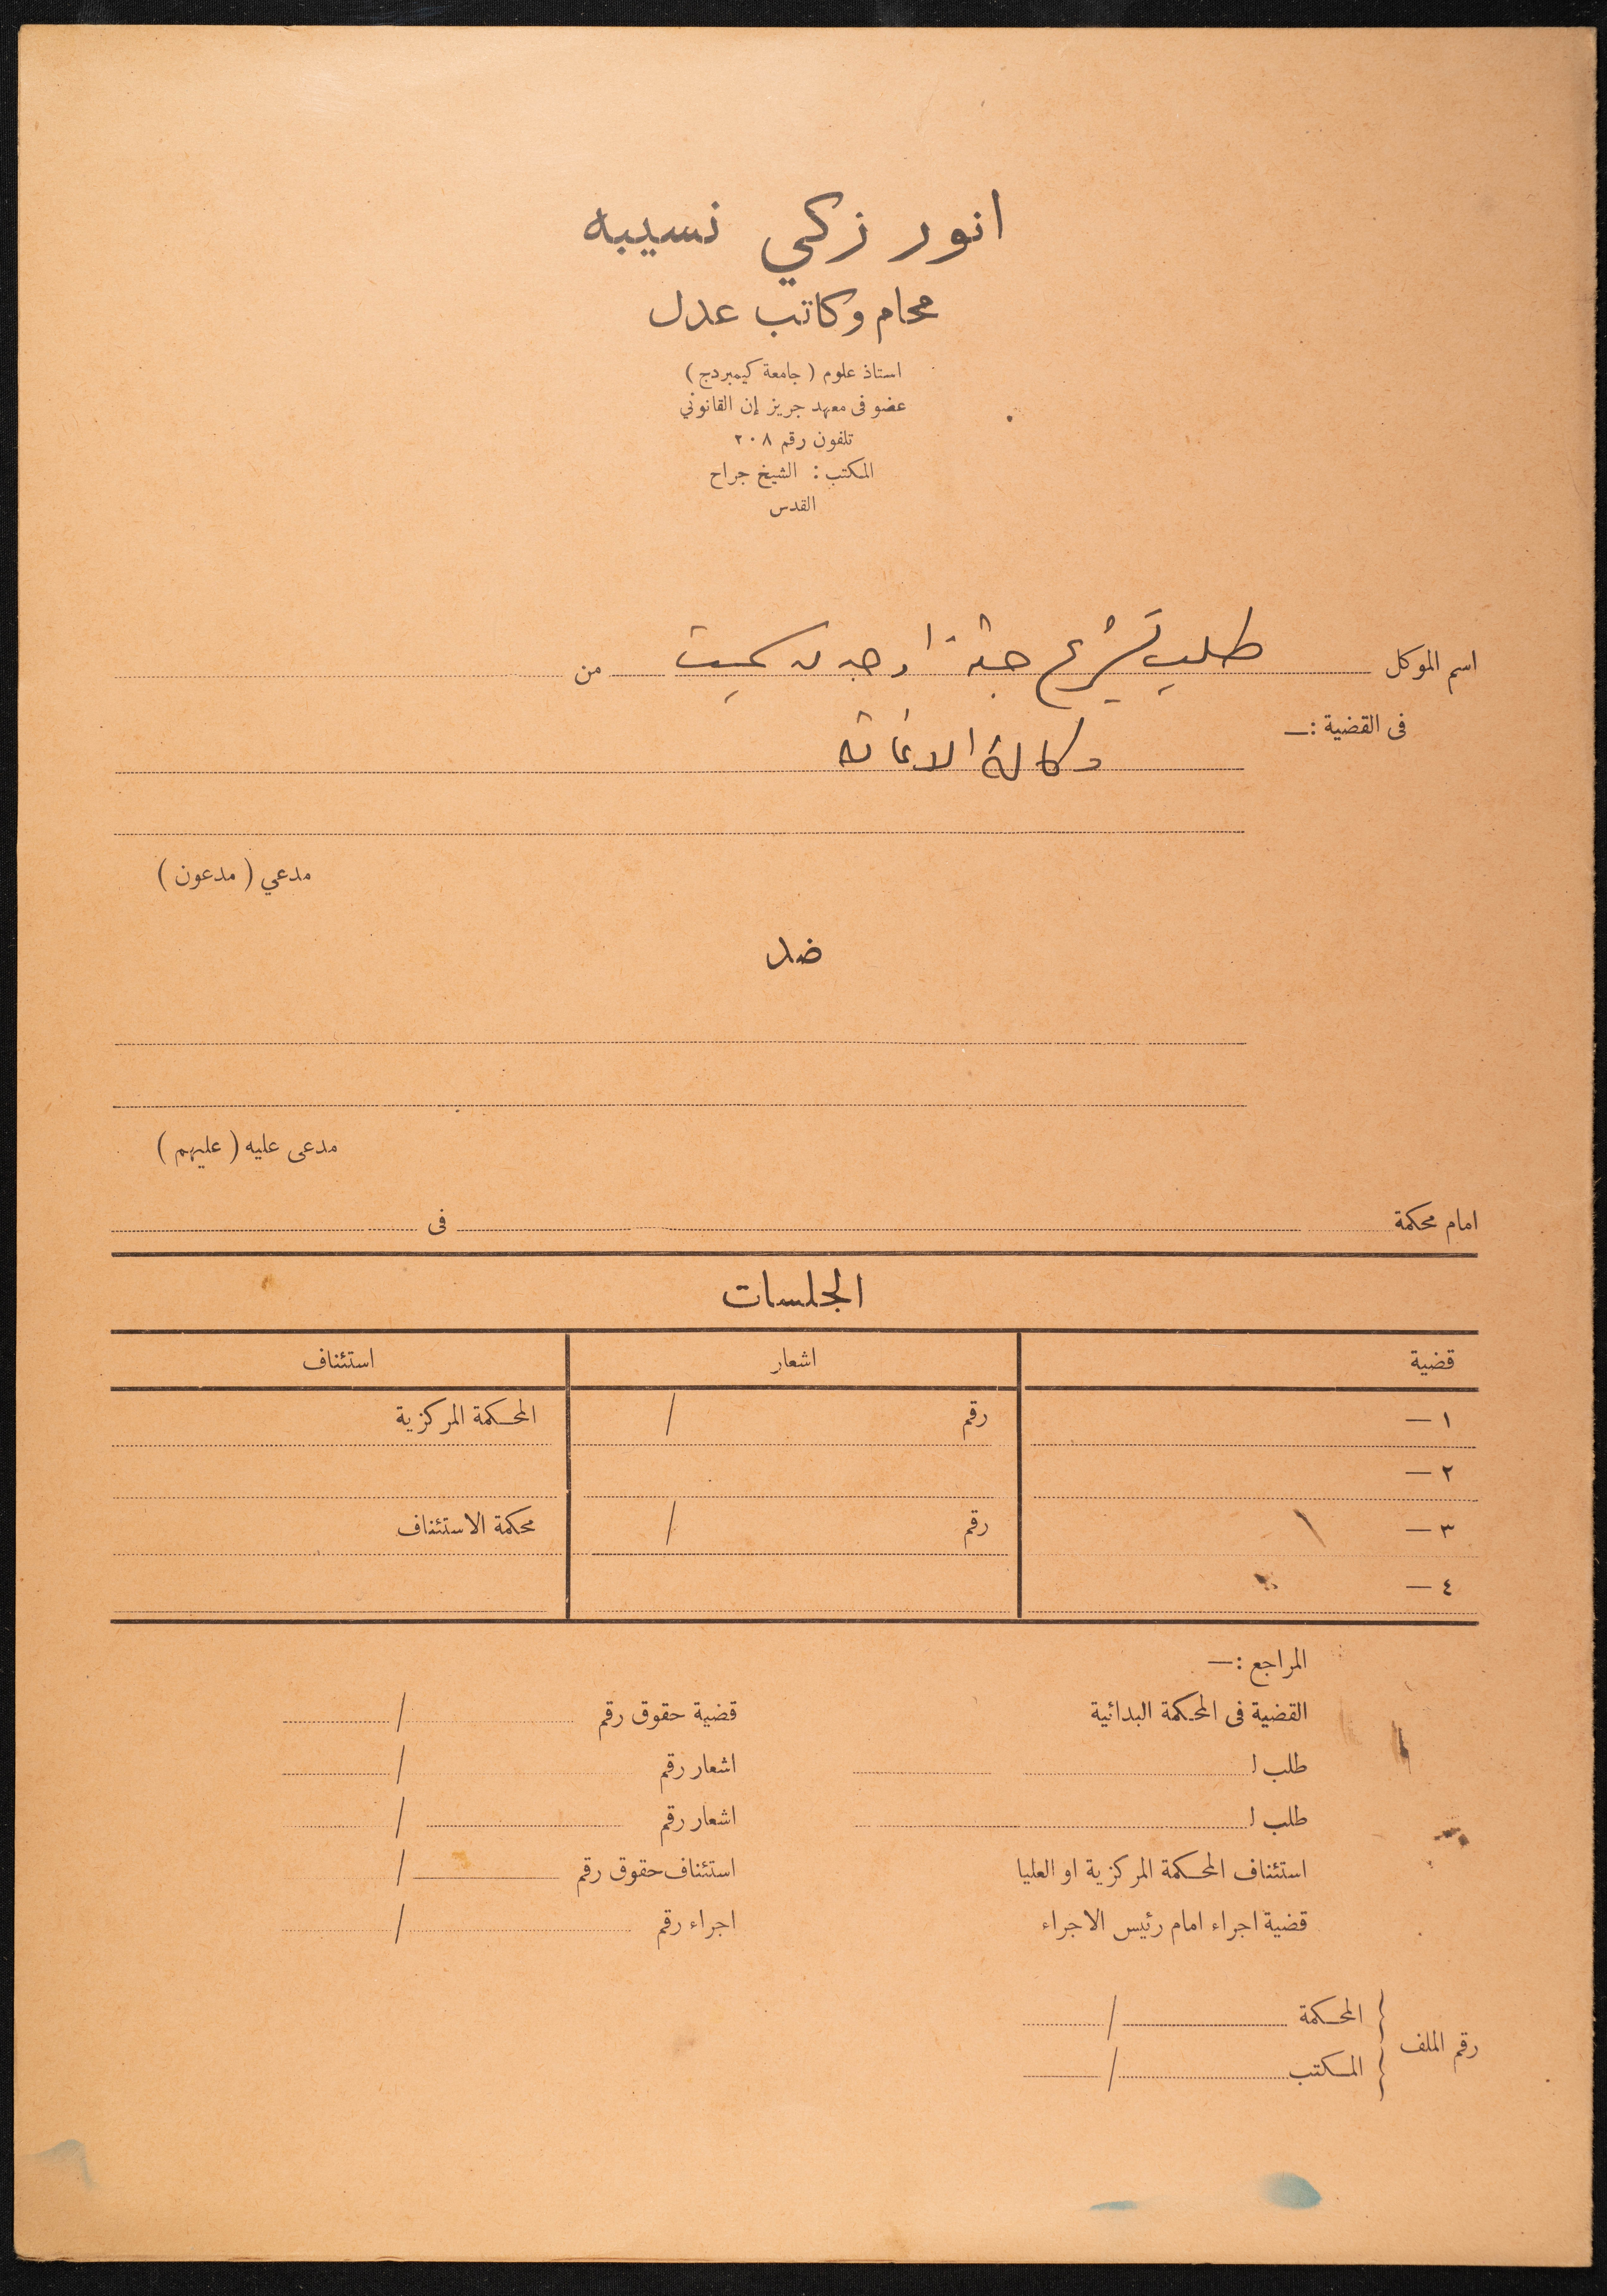 انور زكي نسيبه
محام وكاتب عدل
استاذ علوم (جامعة كيمبردج)
عضو فى معهد جريز إن القانوني
تلفون رقم ٢٠٨
المكتب : الشيخ جراح
القدس
اسم الموكل طلب تشريح جثة من
فى القضية :—
وكالة الاغاثه
مدعي (مدعون)
ضد
مدعى عليه (عليهم)
امام محكمة فى
الجلسات
قضية اشعار استئناف
١ — رقم / المحكمة المركزية
٢ —
٣ — رقم / محكمة الاستئناف
٤ —
المراجع :—
القضية فى المحكمة البدائية قضية حقوق رقم /
طلب لـ اشعار رقم /
طلب لـ اشعار رقم /
استئناف المحكمة المركزية او العليا استئناف حقوق رقم /
قضية اجراء امام رئيس الاجراء اجراء رقم /
رقم الملف
المحكمة /
المكتب /